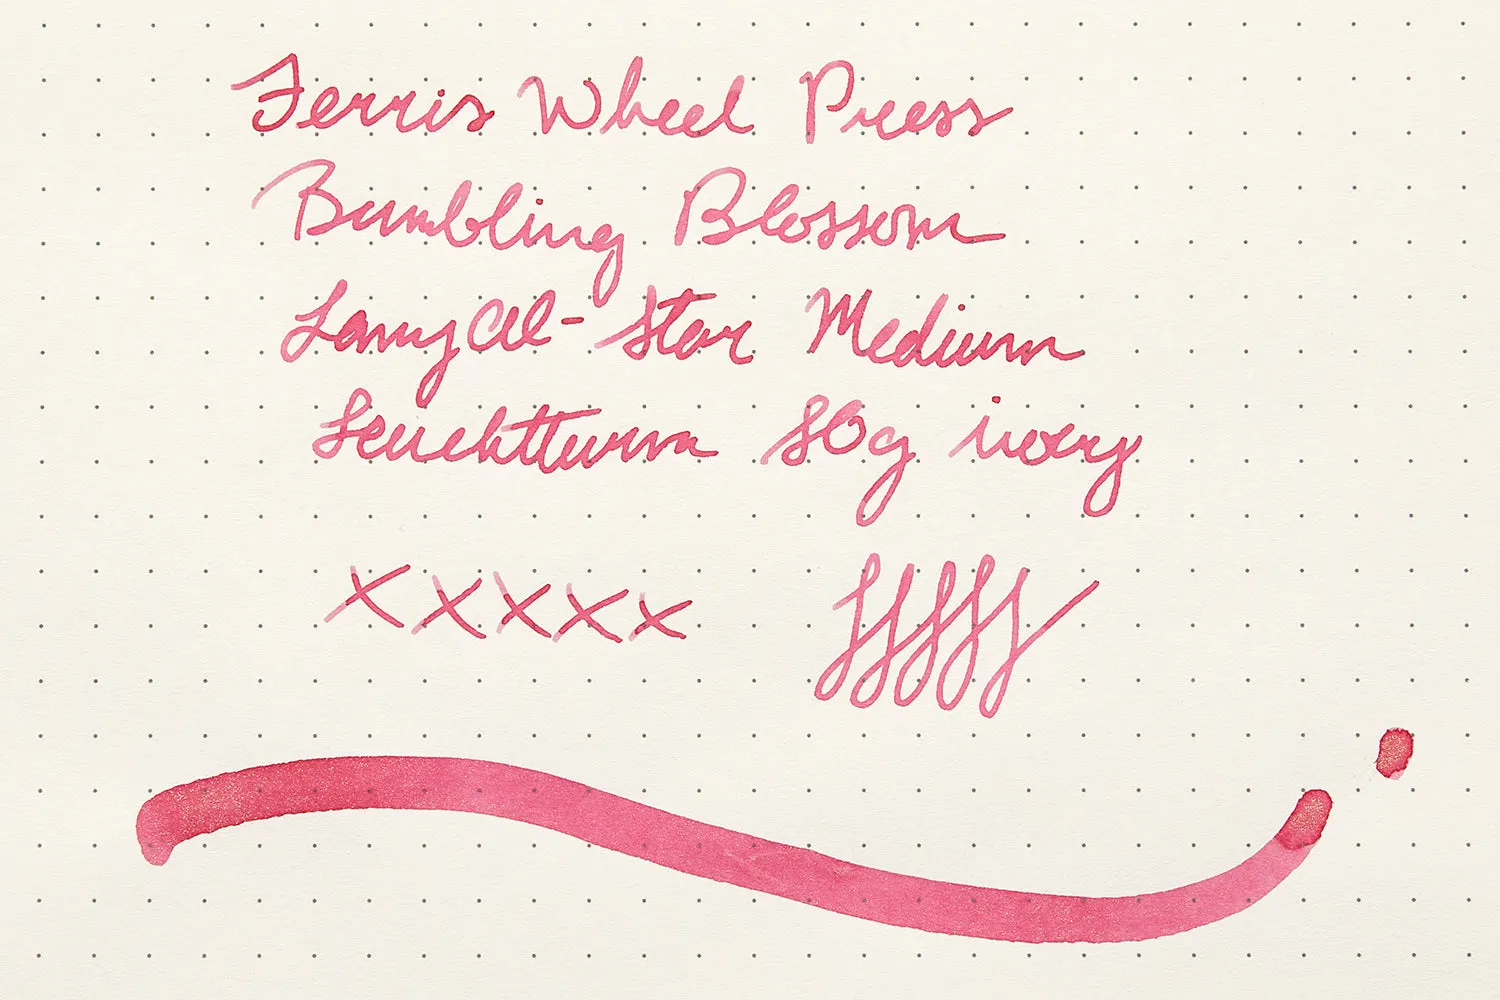 Ferris Wheel Press
Bumbling Blossom
Lamy Al-Star Medium
Leuchtturm 80g ivory
xxxxx